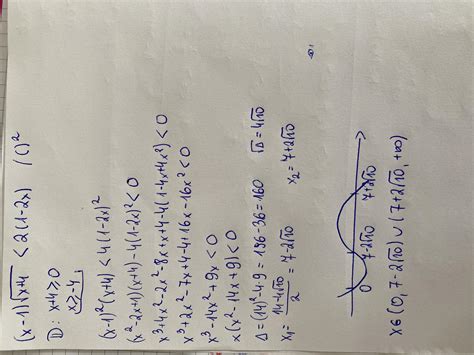 (x-1)√x+4 < 2(1-2x) /()²
D: x+4≥0
x≥-4
(x-1)²(x+4) < 4(1-2x)²
(x²-2x+1)(x+4)-4(1-2x)²<0
x³+4x²-2x²-8x+x+4-4(1-4x+4x²)<0
x³+2x²-7x+4-4+16x-16x²<0
x³-14x²+9x<0
x(x²-14x+9)<0
Δ=(14)²-4·9=196-36=160 √Δ=4√10
x₁=14-4√10/2=7-2√10 x₂=7+2√10
0 7-2√10 7+2√10
x∈(0,7-2√10)∪(7+2√10,+∞)